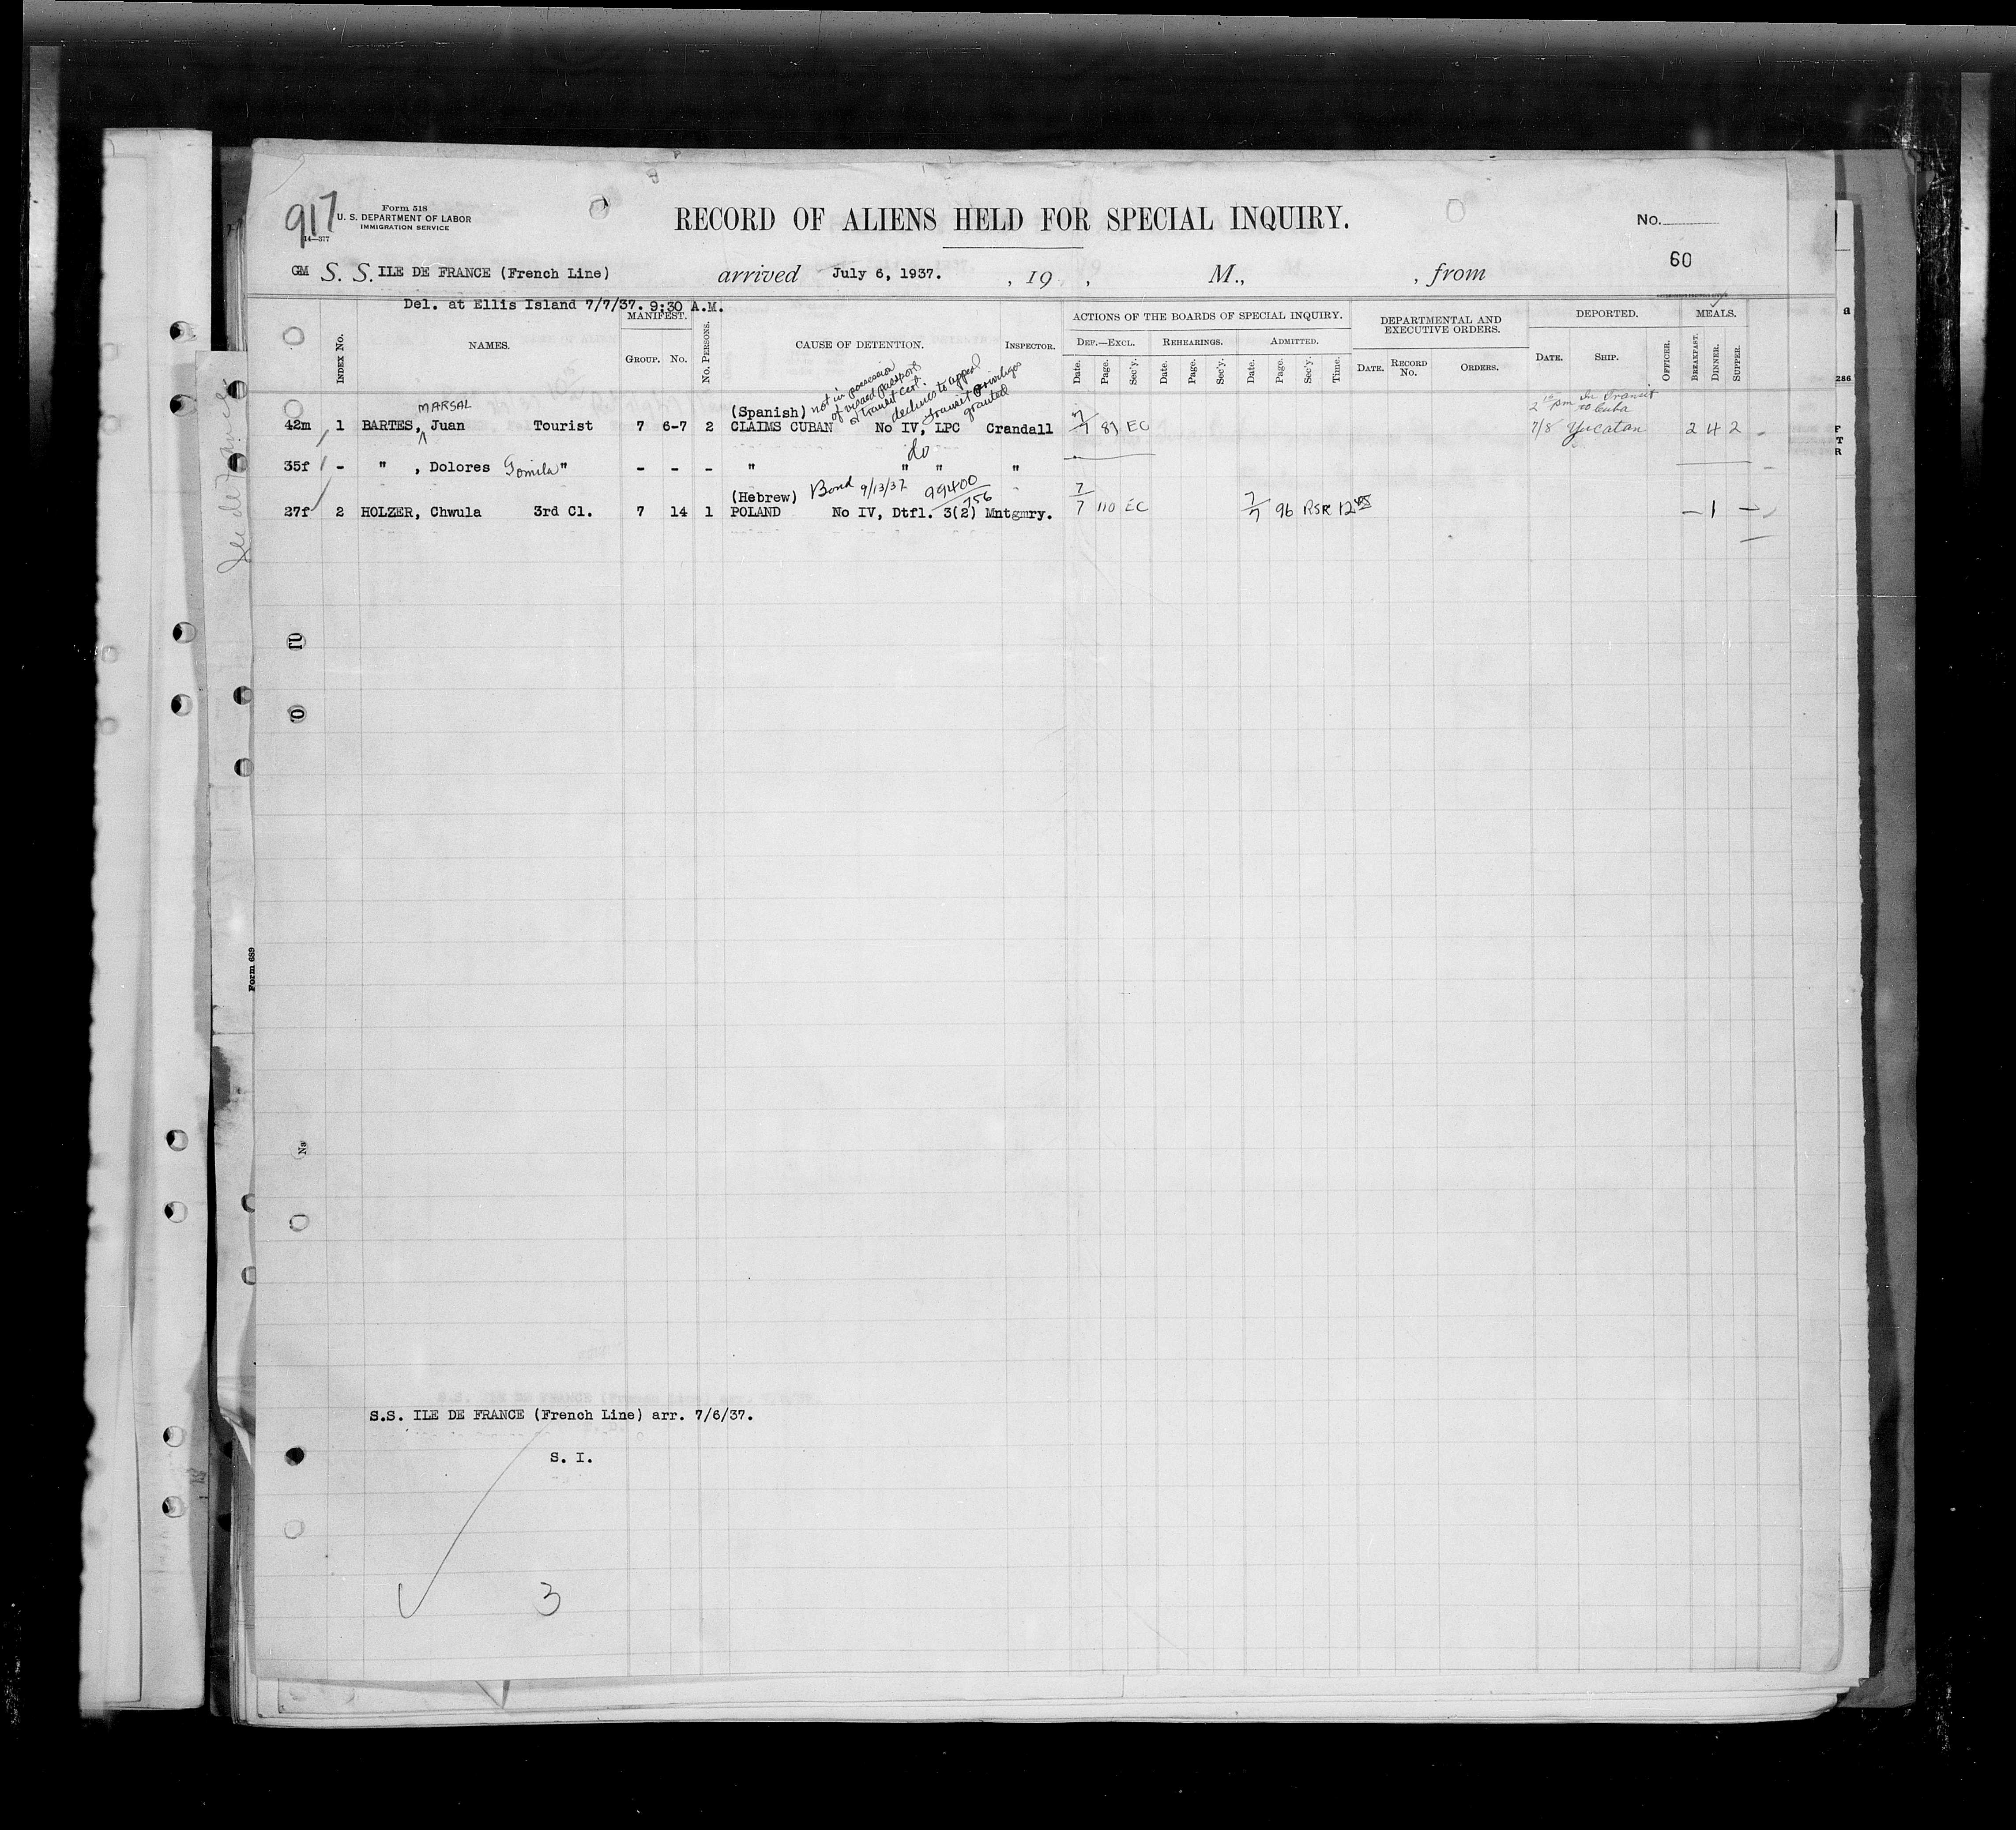 917
Form 518
U. S. DEPARTMENT OF LABOR
IMMIGRATION SERVICE
14—377
RECORD OF ALIENS HELD FOR SPECIAL INQUIRY.
No.
60
GM S. S. ILE DE FRANCE (French Line) arrived July 6, 1937. , 19 , M., , from
Del. at Ellis Island 7/7/37. 9:30 A.M.
INDEX No. NAMES. MANIFEST. GROUP. No. No. PERSONS. CAUSE OF DETENTION. INSPECTOR.
ACTIONS OF THE BOARDS OF SPECIAL INQUIRY.
DEF.—EXCL. REHEARINGS. ADMITTED.
Date. Page. Sec'y. Date. Page. Sec'y. Date. Page. Sec'y. Time.
DEPARTMENTAL AND
EXECUTIVE ORDERS.
DATE. RECORD No. ORDERS.
DEPORTED.
DATE. SHIP. OFFICER.
MEALS.
BREAKFAST. DINNER. SUPPER.
not in possession
of visaed passport
or transit cert.
declines to appeal
transit privileges
granted
MARSAL
(Spanish)
pm In Transit
to Cuba
42m 1 BARTES, Juan Tourist 7 6-7 2 CLAIMS CUBAN No IV, LPC Crandall 7/7 87 EC 7/8 Yucatan 2 4 2
do
35f - " , Dolores Gomila " - - - " " " "
(Hebrew) Bond 9/13/37 99400/756
27f 2 HOLZER, Chwula 3rd Cl. 7 14 1 POLAND No IV, Dtfl. 3(2) Mntgmry. 7/7 110 EC 7/7 96 RSR 12 45 — 1 —
Form 689
286
S.S. ILE DE FRANCE (French Line) arr. 7/6/37.
S. I.
3